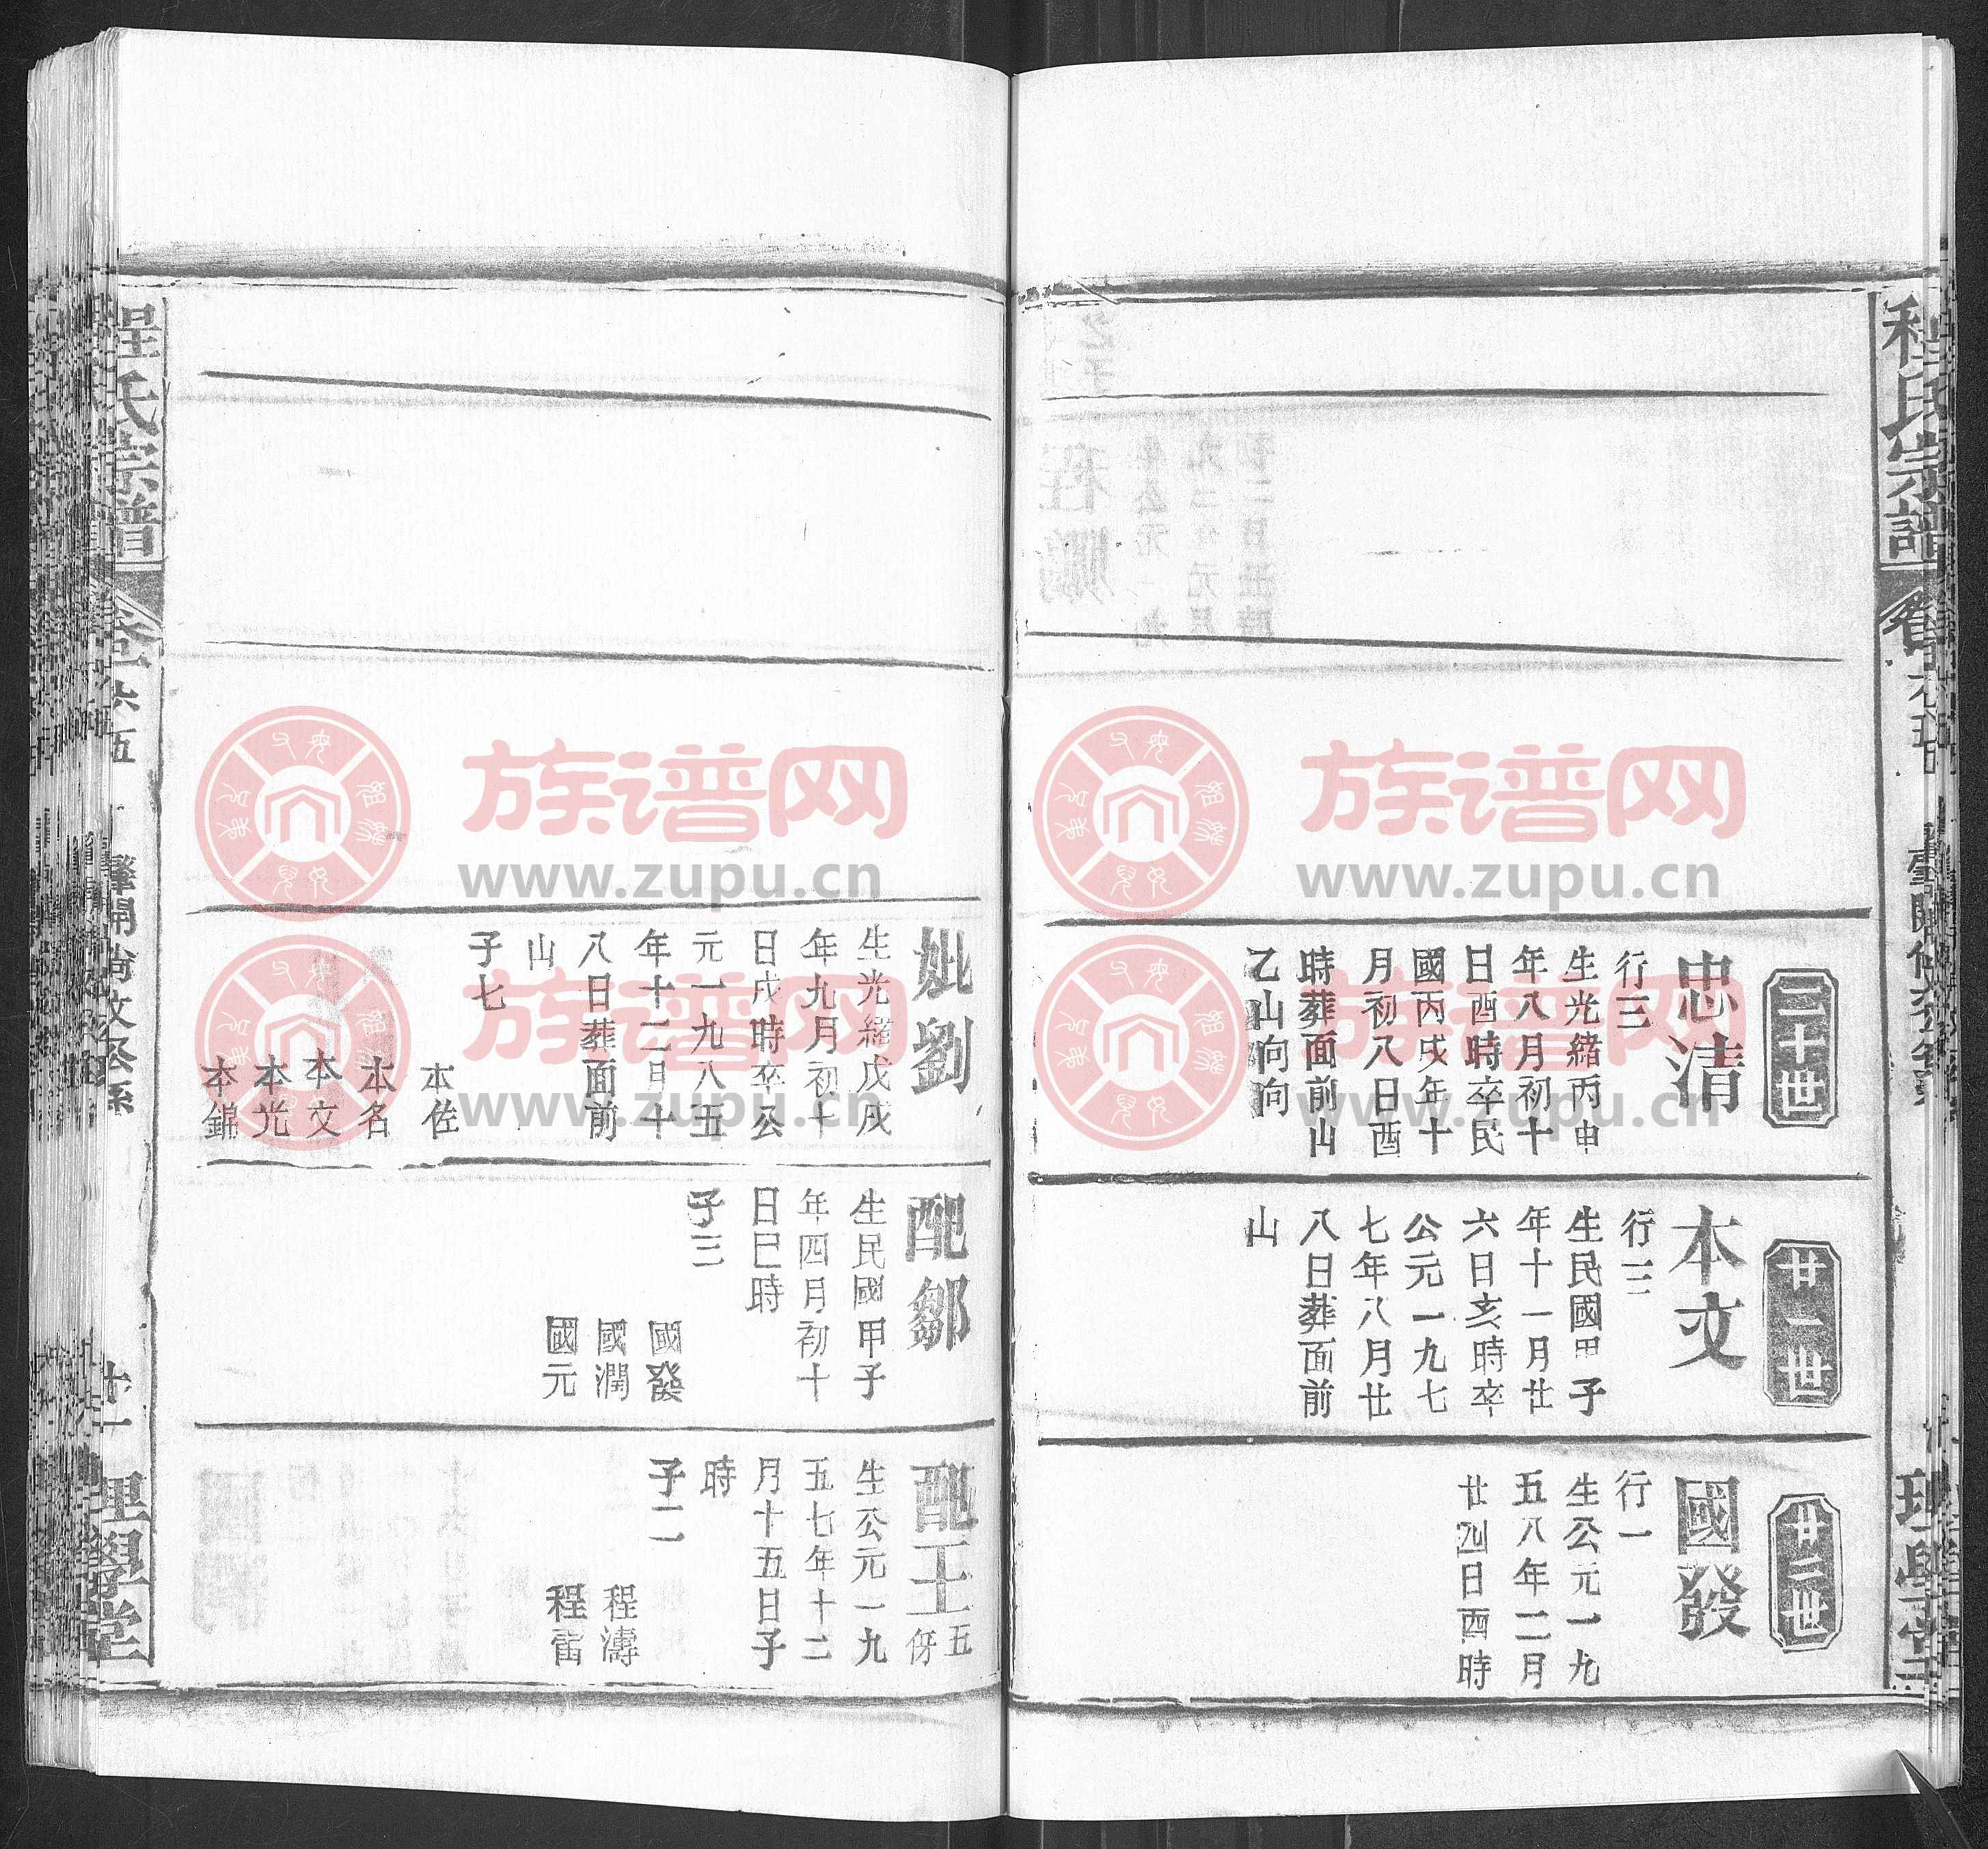 程氏宗譜
二十世
忠清
行三
生光緒丙申
年八月初十
日酉時卒民
國丙戌年十
月初八日酉
時葬面前山
乙山向向
廿一世
本文
行三
生民國甲子
年十一月廿
六日亥時卒
公元一九七
七年八月廿
八日葬面前
山
廿二世
國發
行一
生公元一九
五八年二月
廿九日酉時
族谱网
www.zupu.cn
族谱网
www.zupu.cn
妣劉
生光緒戊戌
年九月初十
日戌時卒公
元一九八五
年十二月十
八日葬面前
山
子七
本佐
本名
本文
本光
本錦
配鄒
生民國甲子
年四月初十
日巳時
子三
國發
國潤
國元
配王
五
伢
生公元一九
五七年十二
月十五日子
時
子二
程濤
程雷
族谱网
www.zupu.cn
族谱网
www.zupu.cn
程氏宗譜
理學堂